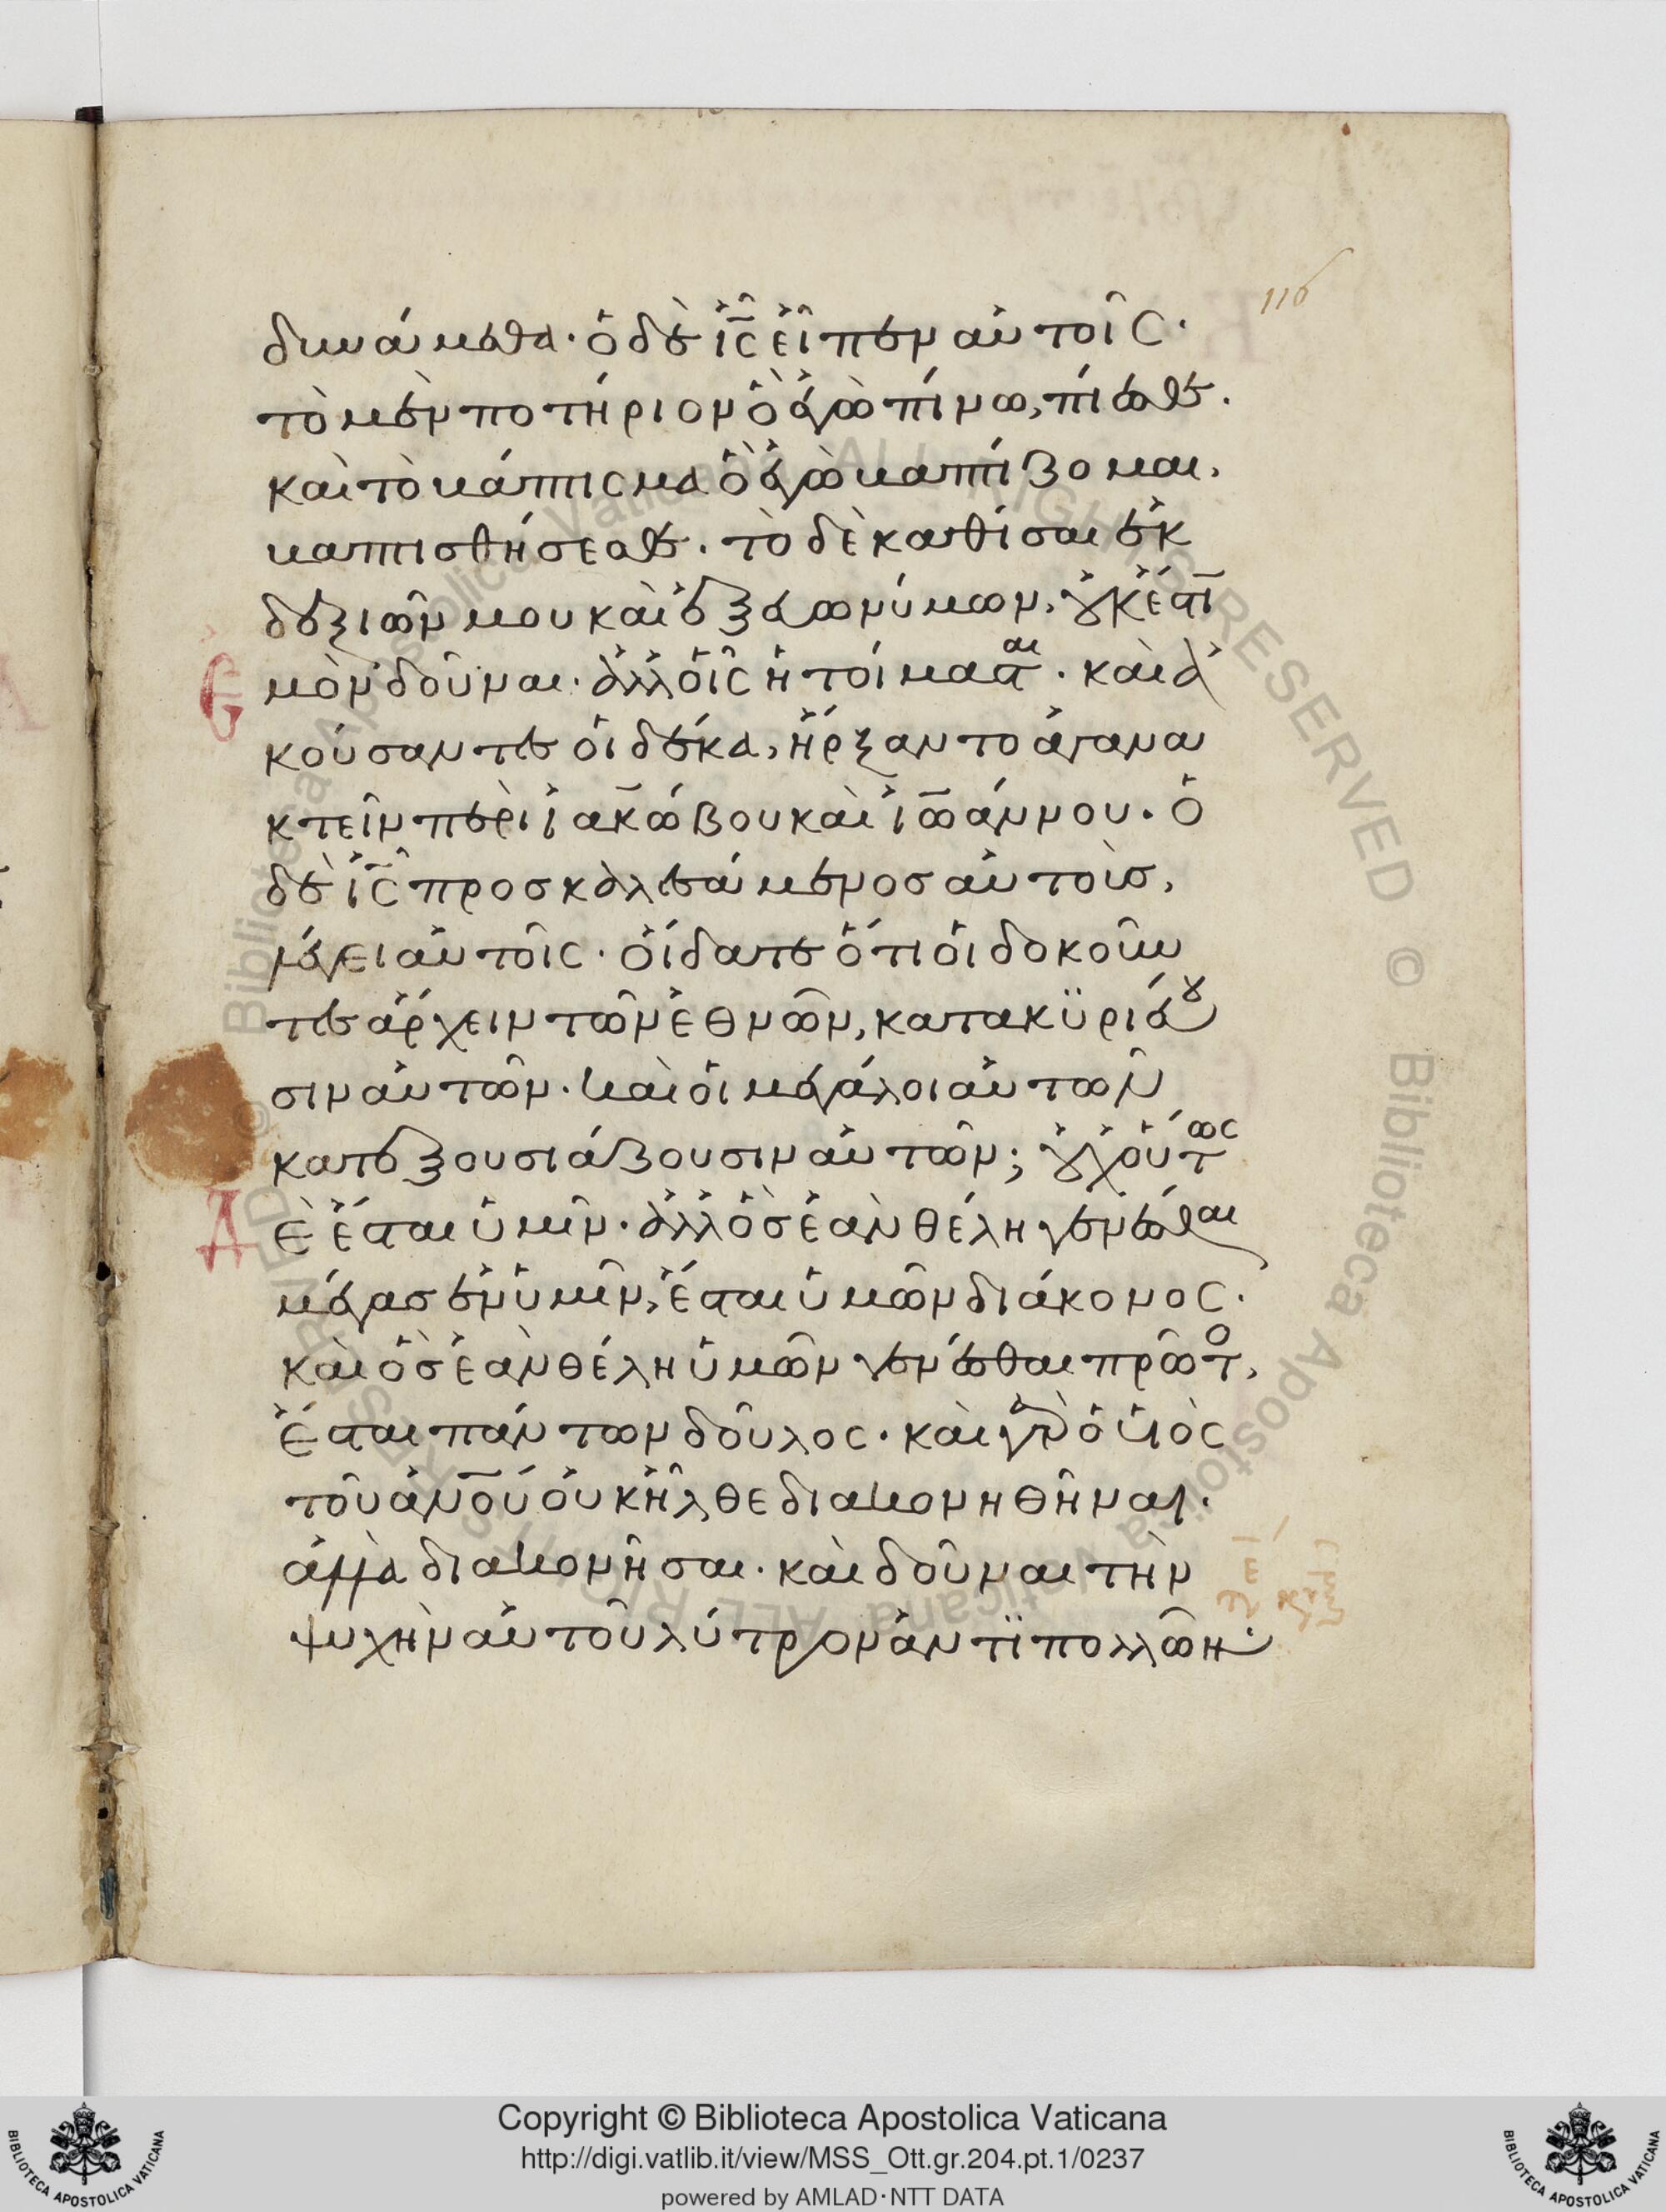 116
δυνάμεθα· ὁ δὲ ἰ̅ς̅ εἶπεν αὐτοῖς·
τὸ μὲν ποτήριον ὃ ἐγὼ πίνω, πίεσθε.
καὶ τὸ βάπτισμα ὃ ἐγὼ βαπτίζομαι,
βαπτισθήσεσθε. τὸ δὲ καθίσαι ἐκ
δεξιῶν μου καὶ ἐξ εὐωνύμων, οὐκ ἔστιν ἐ
μὸν δοῦναι· ἀλλ οἷς ἡτοίμασται. καὶ ἀ
κούσαντες οἱ δέκα, ἤρξαντο ἀγανα
κτεῖν περὶ ἰακώβου καὶ ἰωάννου. ὁ
δὲ ἰ̅ς̅ προσκαλεσάμενος αὐτοὺς,
λέγει αὐτοῖς· οἴδατε ὅτι οἱ δοκοῦν
τες ἄρχειν τῶν ἐθνῶν, κατακϋριεύου
σιν αὐτῶν· καὶ οἱ μεγάλοι αὐτῶν
κατεξουσιάζουσιν αὐτῶν; οὐχ οὕτως
ἔσται ὑμῖν· ἀλλ ὃς ἐὰν θέλη γενέσθαι
μέγας ἐν ὑμῖν, ἔσται ὑμῶν διάκονος·
καὶ ὃς ἐὰν θέλη ὑμῶν γενέσθαι πρῶτο,
ἔσται πάντων δοῦλος· καὶ γὰρ ὁ υἱὸς
τοῦ ἀν̅ο̅υ̅ οὐκ ἦλθε διακονηθῆναι·
ἀλλὰ διακονῆσαι· καὶ δοῦναι τὴν
ψυχὴν αὐτοῦ λύτρον ἀντϊ πολλῶν·
Copyright © Biblioteca Apostolica Vaticana
http://digi.vatlib.it/view/MSS_Ott.gr.204.pt.1/0237
powered by AMLAD·NTT DATA
BIBLIOTECA APOSTOLICA VATICANA
BIBLIOTECA APOSTOLICA VATICANA